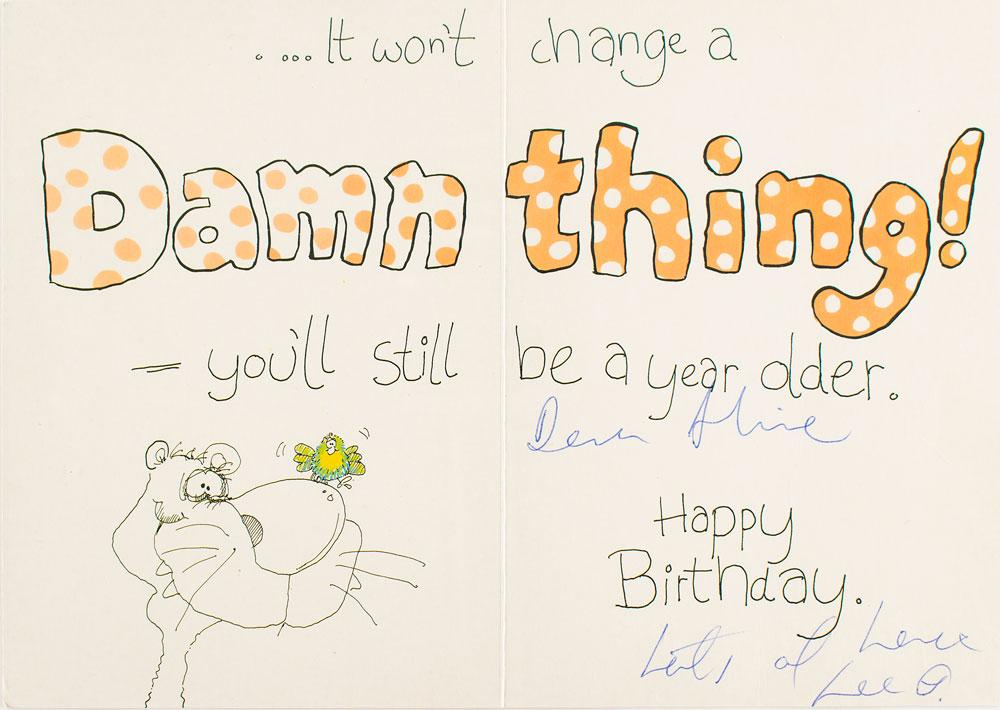 . ... It won't change a
Damn thing!
= you'll still be a year older.
Dear Aline
Happy
Birthday.
Lots of Love
Lee O.